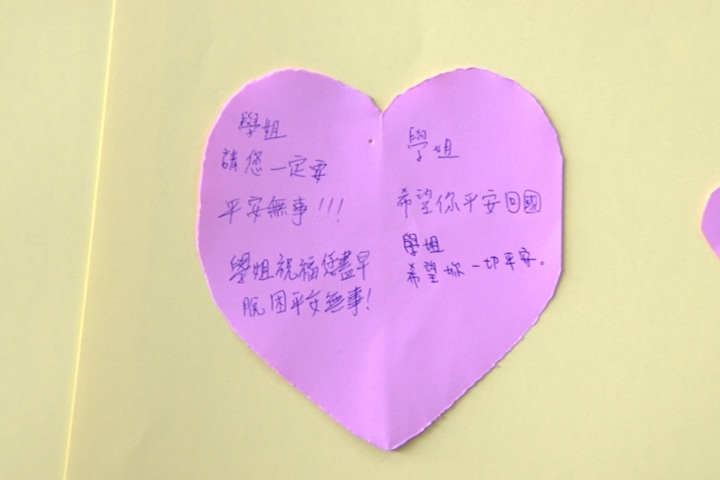 學姐
請您一定要
平安無事!!!
學姐祝福您盡早
脫困平安無事!
學姐
希望你平安回國
學姐
希望妳一切平安。